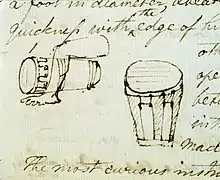 a foot in diameter, a bea
quickness with the edge of hi
oth
ope
be
int
Mac
The most curious inst